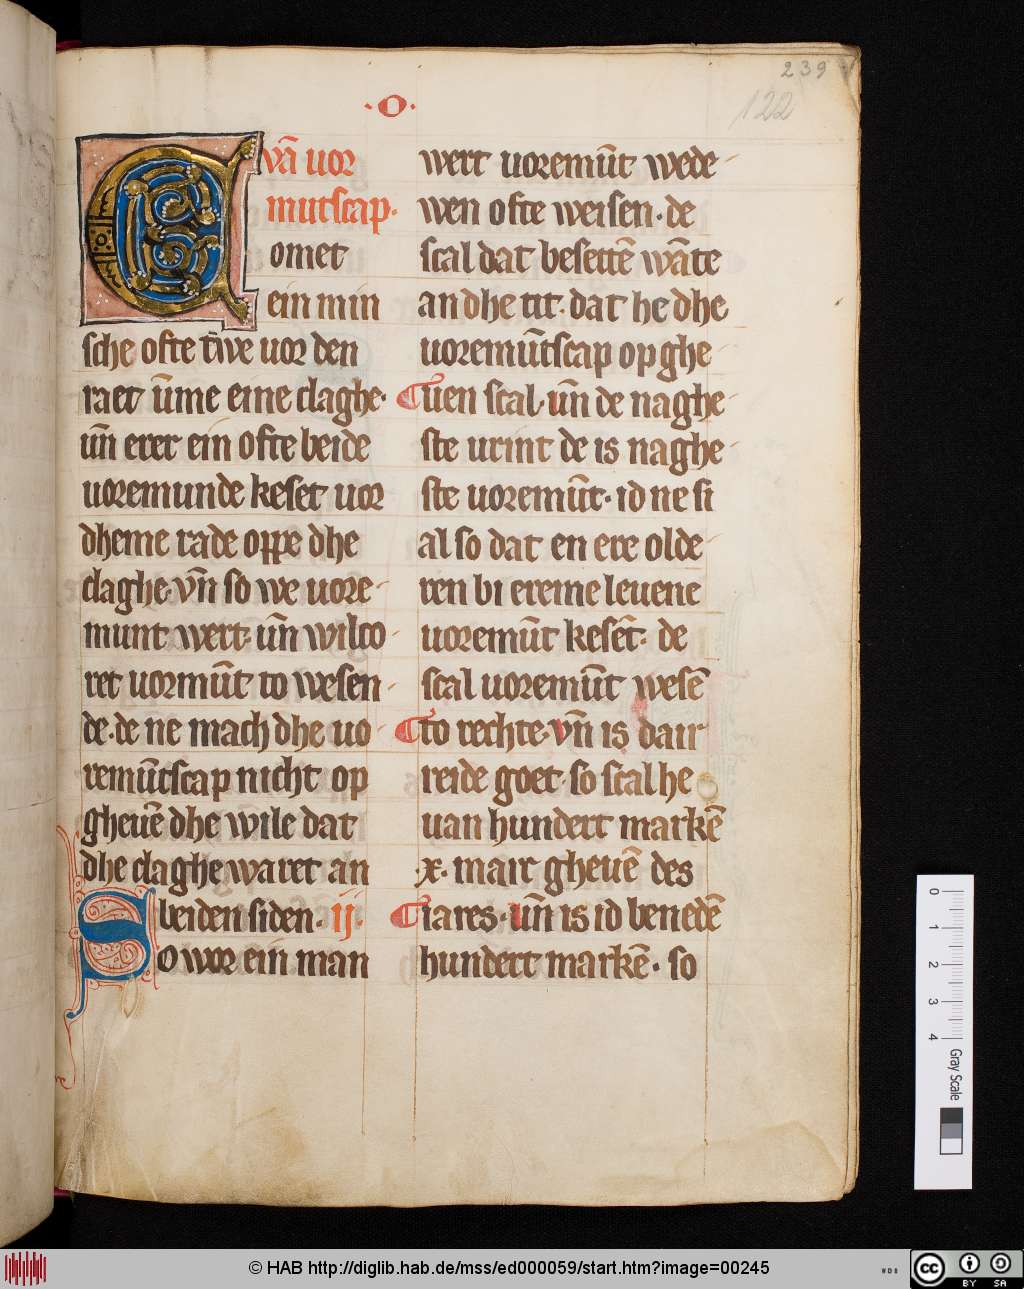 239
122
·O·
vā uor
mutscap·
Comet
ein min
sche ofte twe uor den
raet ūme eine claghe·
un̄ erer ein ofte beide
uoremunde keset uor
dheme rade oppe dhe
claghe· vn̄ so we uore-
munt wert· un̄ wilco-
ret uormūt to wesen-
de· de ne mach dhe uo-
remūtscap nicht op
gheuē dhe wile dat
dhe claghe waret an
beiden siden· ij·
So wor ein man
wert uoremūt wede-
wen ofte weisen· de
scal dat besettē wāte
an dhe tit· dat he dhe
uoremūtscap op ghe-
uen scal· un̄ de naghe-
ste urint de is naghe-
ste uoremūt· id ne si
al so dat en ere olde-
ren bi ereme leuene
uoremūt kesēt· de
scal uoremūt wesē
to rechte· vn̄ is dair
reide goet· so scal he
uan hundert markē
·x· marc gheuē des
iares· un̄ is id benedē
hundert markē· so
0
1
2
3
4
Gray Scale
© HAB http://diglib.hab.de/mss/ed000059/start.htm?image=00245
WDB
cc
BY SA